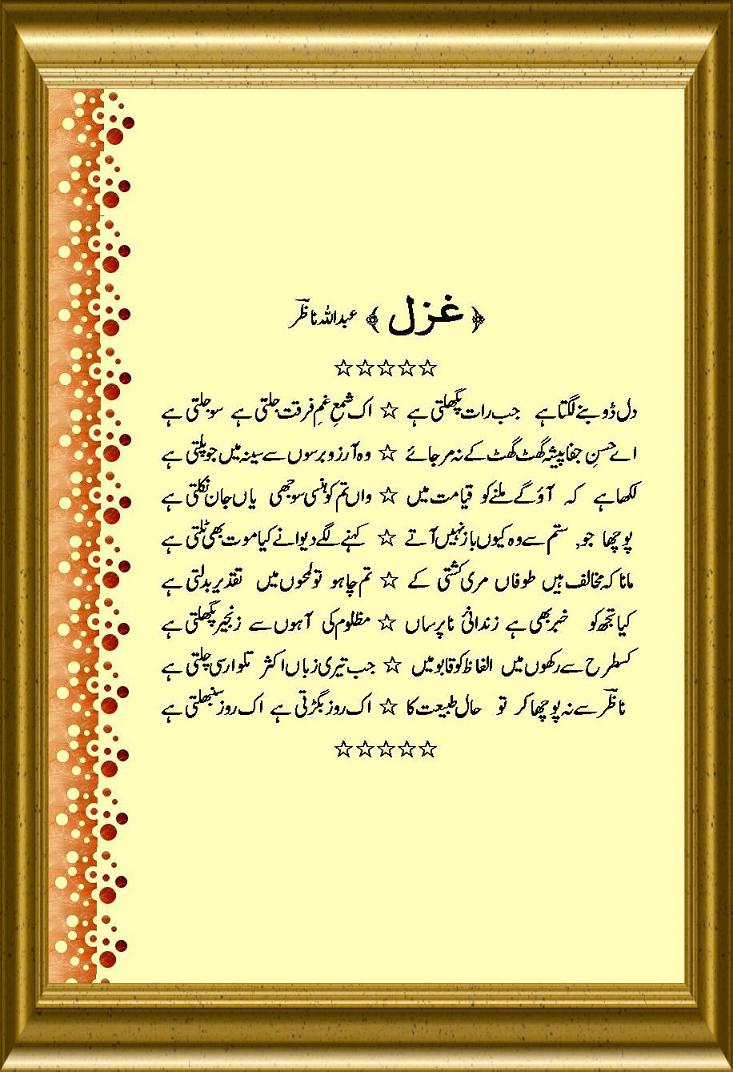 ﴿ غزل ﴾ عبداللہ ناظرؔ
☆☆☆☆☆
دل ڈوبنے لگتا ہے جب رات پگھلتی ہے ☆ اک شمعِ غمِ فرقت جلتی ہے سو جلتی ہے
اے حسنِ جفا پیشہ گھٹ گھٹ کے نہ مر جائے ☆ وہ آرزو برسوں سے سینہ میں جو پلتی ہے
لکھا ہے کہ آؤ گے ملنے کو قیامت میں ☆ واں تم کو ہنسی سوجھی یاں جان نکلتی ہے
پوچھا جو, ستم سے وہ کیوں باز نہیں آتے ☆ کہنے لگے دیوانے کیا موت بھی ٹلتی ہے
مانا کہ مخالف ہیں طوفاں مری کشتی کے ☆ تم چاہو تو لمحوں میں تقدیر بدلتی ہے
کیا تجھ کو خبر بھی ہے زندانئ ناپرساں ☆ مظلوم کی آہوں سے زنجیر پگھلتی ہے
کسطرح سے رکھوں میں الفاظ کو قابو میں ☆ جب تیری زباں اکثر تلوار سی چلتی ہے
ناظرؔ سے نہ پوچھا کر تو حال طبیعت کا ☆ اک روز بگڑتی ہے اک روز سنبھلتی ہے
☆☆☆☆☆